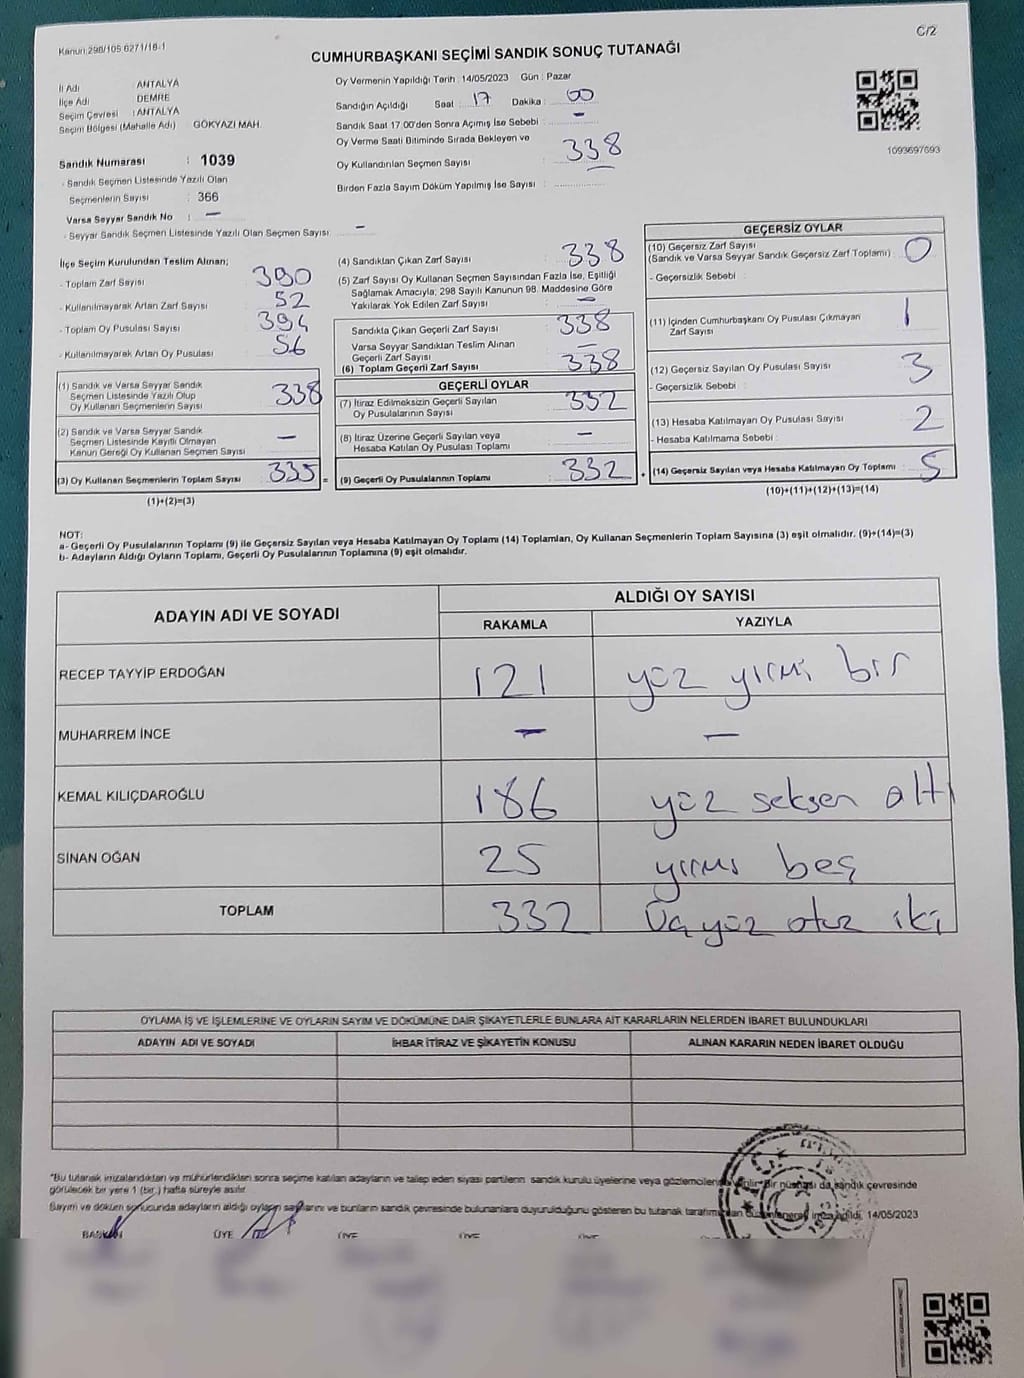 Kanun 298/105 6271/18-1
C/2
CUMHURBAŞKANI SEÇİMİ SANDIK SONUÇ TUTANAĞI
İl Adı : ANTALYA
İlçe Adı DEMRE
Seçim Çevresi : ANTALYA
Seçim Bölgesi (Mahalle Adı) GÖKYAZI MAH.
Sandık Numarası : 1039
- Sandık Seçmen Listesinde Yazılı Olan
Seçmenlerin Sayısı : 366
Varsa Seyyar Sandık No : —
- Seyyar Sandık Seçmen Listesinde Yazılı Olan Seçmen Sayısı: —
Oy Vermenin Yapıldığı Tarih : 14/05/2023 Gün : Pazar
Sandığın Açıldığı Saat 17 Dakika : 00
Sandık Saat 17:00'den Sonra Açımış İse Sebebi : —
Oy Verme Saati Bitiminde Sırada Bekleyen ve
Oy Kullandırılan Seçmen Sayısı 338
Birden Fazla Sayım Döküm Yapılmış İse Sayısı
1093697693
İlçe Seçim Kurulundan Teslim Alınan;
- Toplam Zarf Sayısı 390
- Kullanılmayarak Artan Zarf Sayısı 52
- Toplam Oy Pusulası Sayısı 394
- Kullanılmayarak Artan Oy Pusulası 56
(1) Sandık ve Varsa Seyyar Sandık
Seçmen Listesinde Yazılı Olup
Oy Kullanan Seçmenlerin Sayısı 338
(2) Sandık ve Varsa Seyyar Sandık
Seçmen Listesinde Kayıtlı Olmayan
Kanun Gereği Oy Kullanan Seçmen Sayısı —
(3) Oy Kullanan Seçmenlerin Toplam Sayısı 335 =
(1)+(2)=(3)
(4) Sandıktan Çıkan Zarf Sayısı 338
(5) Zarf Sayısı Oy Kullanan Seçmen Sayısından Fazla İse, Eşitliği
Sağlamak Amacıyla; 298 Sayılı Kanunun 98. Maddesine Göre
Yakılarak Yok Edilen Zarf Sayısı —
Sandıkta Çıkan Geçerli Zarf Sayısı 338
Varsa Seyyar Sandıktan Teslim Alınan
Geçerli Zarf Sayısı —
(6) Toplam Geçerli Zarf Sayısı 338
GEÇERLİ OYLAR
(7) İtiraz Edilmeksizin Geçerli Sayılan
Oy Pusulalarının Sayısı 332
(8) İtiraz Üzerine Geçerli Sayılan veya
Hesaba Katılan Oy Pusulası Toplamı —
(9) Geçerli Oy Pusulalarının Toplamı 332 +
GEÇERSİZ OYLAR
(10) Geçersiz Zarf Sayısı
(Sandık ve Varsa Seyyar Sandık Geçersiz Zarf Toplamı) 0
- Geçersizlik Sebebi
(11) İçinden Cumhurbaşkanı Oy Pusulası Çıkmayan
Zarf Sayısı 1
(12) Geçersiz Sayılan Oy Pusulası Sayısı 3
- Geçersizlik Sebebi
(13) Hesaba Katılmayan Oy Pusulası Sayısı 2
- Hesaba Katılmama Sebebi
(14) Geçersiz Sayılan veya Hesaba Katılmayan Oy Toplamı 5
(10)+(11)+(12)+(13)=(14)
NOT:
a- Geçerli Oy Pusulalarının Toplamı (9) ile Geçersiz Sayılan veya Hesaba Katılmayan Oy Toplamı (14) Toplamları, Oy Kullanan Seçmenlerin Toplam Sayısına (3) eşit olmalıdır. (9)+(14)=(3)
b- Adayların Aldığı Oyların Toplamı, Geçerli Oy Pusulalarının Toplamına (9) eşit olmalıdır.
ADAYIN ADI VE SOYADI ALDIĞI OY SAYISI
RAKAMLA YAZIYLA
RECEP TAYYİP ERDOĞAN 121 yüz yirmi bir
MUHARREM İNCE — —
KEMAL KILIÇDAROĞLU 186 yüz seksen altı
SİNAN OĞAN 25 yirmi beş
TOPLAM 332 Üçyüz otuz iki
OYLAMA İŞ VE İŞLEMLERİNE VE OYLARIN SAYIM VE DÖKÜMÜNE DAİR ŞİKAYETLERLE BUNLARA AİT KARARLARIN NELERDEN İBARET BULUNDUKLARI
ADAYIN ADI VE SOYADI İHBAR İTİRAZ VE ŞİKAYETİN KONUSU ALINAN KARARIN NEDEN İBARET OLDUĞU
*Bu tutanak imzalandıktan ve mühürlendikten sonra seçime katılan adayların ve talep eden siyasi partilerin sandık kurulu üyelerine veya gözlemcilerine verilir. Bir nüshası da sandık çevresinde
görülecek bir yere 1 (bir) hafta süreyle asılır.
Sayım ve döküm sonucunda adayların aldığı oyların sayılarını ve bunların sandık çevresinde bulunanlara duyurulduğunu gösteren bu tutanak tarafımızdan düzenlenerek imza edildi. 14/05/2023
BAŞKAN ÜYE ÜYE ÜYE ÜYE